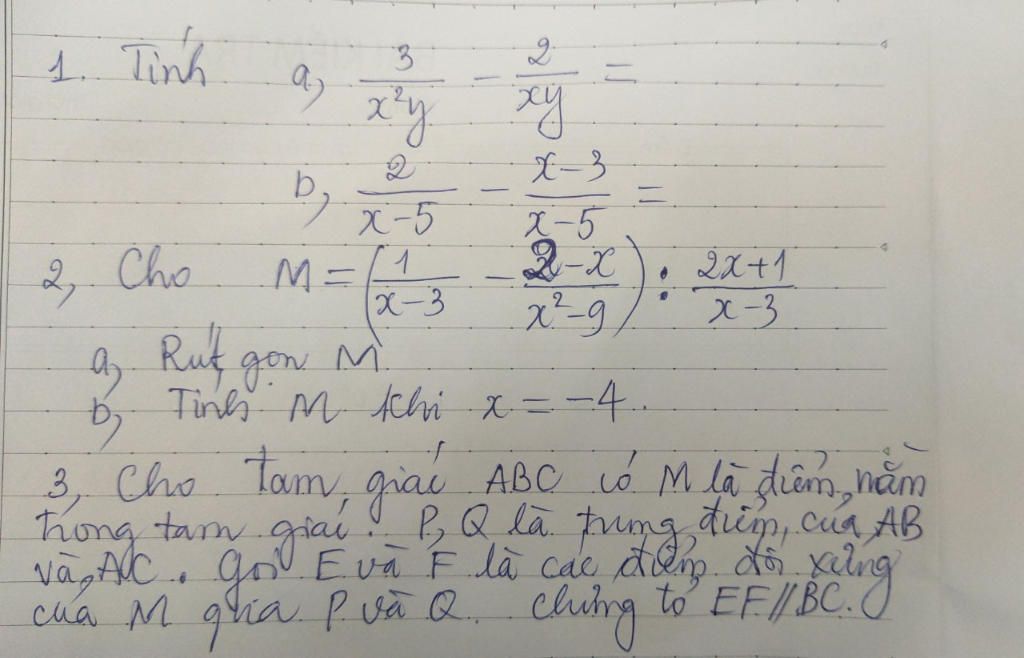 1. Tính a, 3/x²y - 2/xy =
b, 2/x-5 - x-3/x-5 =
2, Cho M = (1/x-3 - 2-x/x²-9) : 2x+1/x-3
a, Rút gọn M.
b, Tính M khi x = -4.
3, Cho tam giác ABC có M là điểm nằm
trong tam giác. P, Q là trung điểm của AB
và AC. Gọi E và F là các điểm đối xứng
của M qua P và Q. Chứng tỏ EF//BC.